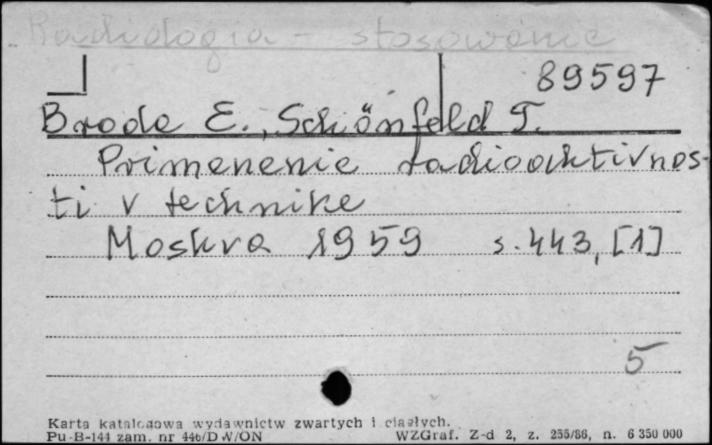 Radiologia - stosowanie
89597
Brode E., Schönfeld T.
Primenenie radioaktivnos-
ti v technike
Moskva 1959 s. 443, [1]
5
Karta katalogowa wydawnictw zwartych i ciągłych.
Pu-B-144 zam. nr 446/DW/ON WZGraf. Z-d 2, z. 255/86, n. 6 350 000